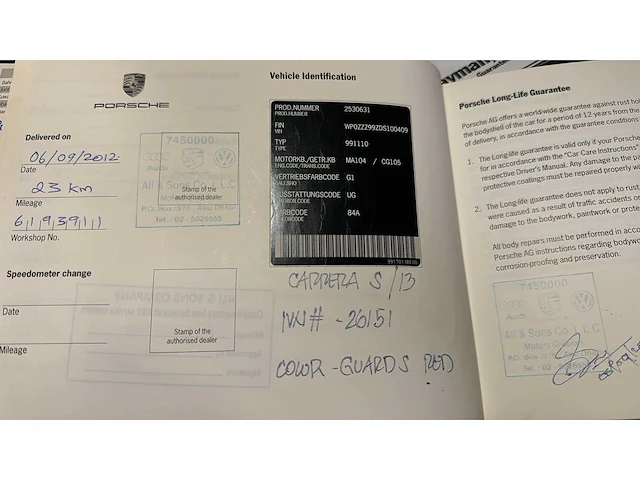 PORSCHE
Delivered on
06/09/2012
Date
23 km
Mileage
6 1 9 3 9 1 1
Workshop No.
7450000
Ali & Sons Co. L.L.C
Stamp of the
authorised dealer
Tel. : 02 - 5026555
Speedometer change
Date
Mileage
Stamp of the
authorised dealer
Vehicle Identification
PROD.NUMMER 2530631
PROD.NUMBER
FIN WP0ZZZ99ZDS100409
VIN
TYP 991110
TYPE
MOTORKB./GETR.KB MA104 / CG105
ENG.CODE/TRANS.CODE
VERTRIEBSFARBCODE G1
SALES NO
AUSSTATTUNGSCODE UG
84A
CARRERA S /13
IVN# - 26151
COLOR - GUARDS RED
Guarantee
Porsche Long-Life Guarantee
Porsche AG offers a world-wide guarantee against rust
the bodyshell of the car for a period of 12 years from the
of delivery, in accordance with the guarantee conditions
1. The Long-life guarantee is valid only if your Porsche
for in accordance with the "Car Care Instructions"
respective Driver's Manual. Any damage to the
protective coatings must be repaired properly
2. The Long-life guarantee does not apply to rust
were caused as a result of traffic accidents or
damage to the bodywork, paintwork or
All body repairs must be performed in
Porsche AG instructions regarding
corrosion-proofing and preservation.
7450000
Ali & Sons Co. L.L.C